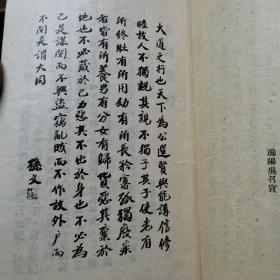 陽吳召宣
大道之行也天下為公選賢與能講信修
睦故人不獨親其親不獨子其子使老有
所終壯有所用幼有所長矜寡孤獨廢疾
者皆有所養男有分女有歸貨惡其棄於
地也不必藏於己力惡其不出於身也不必為
己是謀閉而不興盜竊亂賊而不作故外戶而
不閉是謂大同
孫文